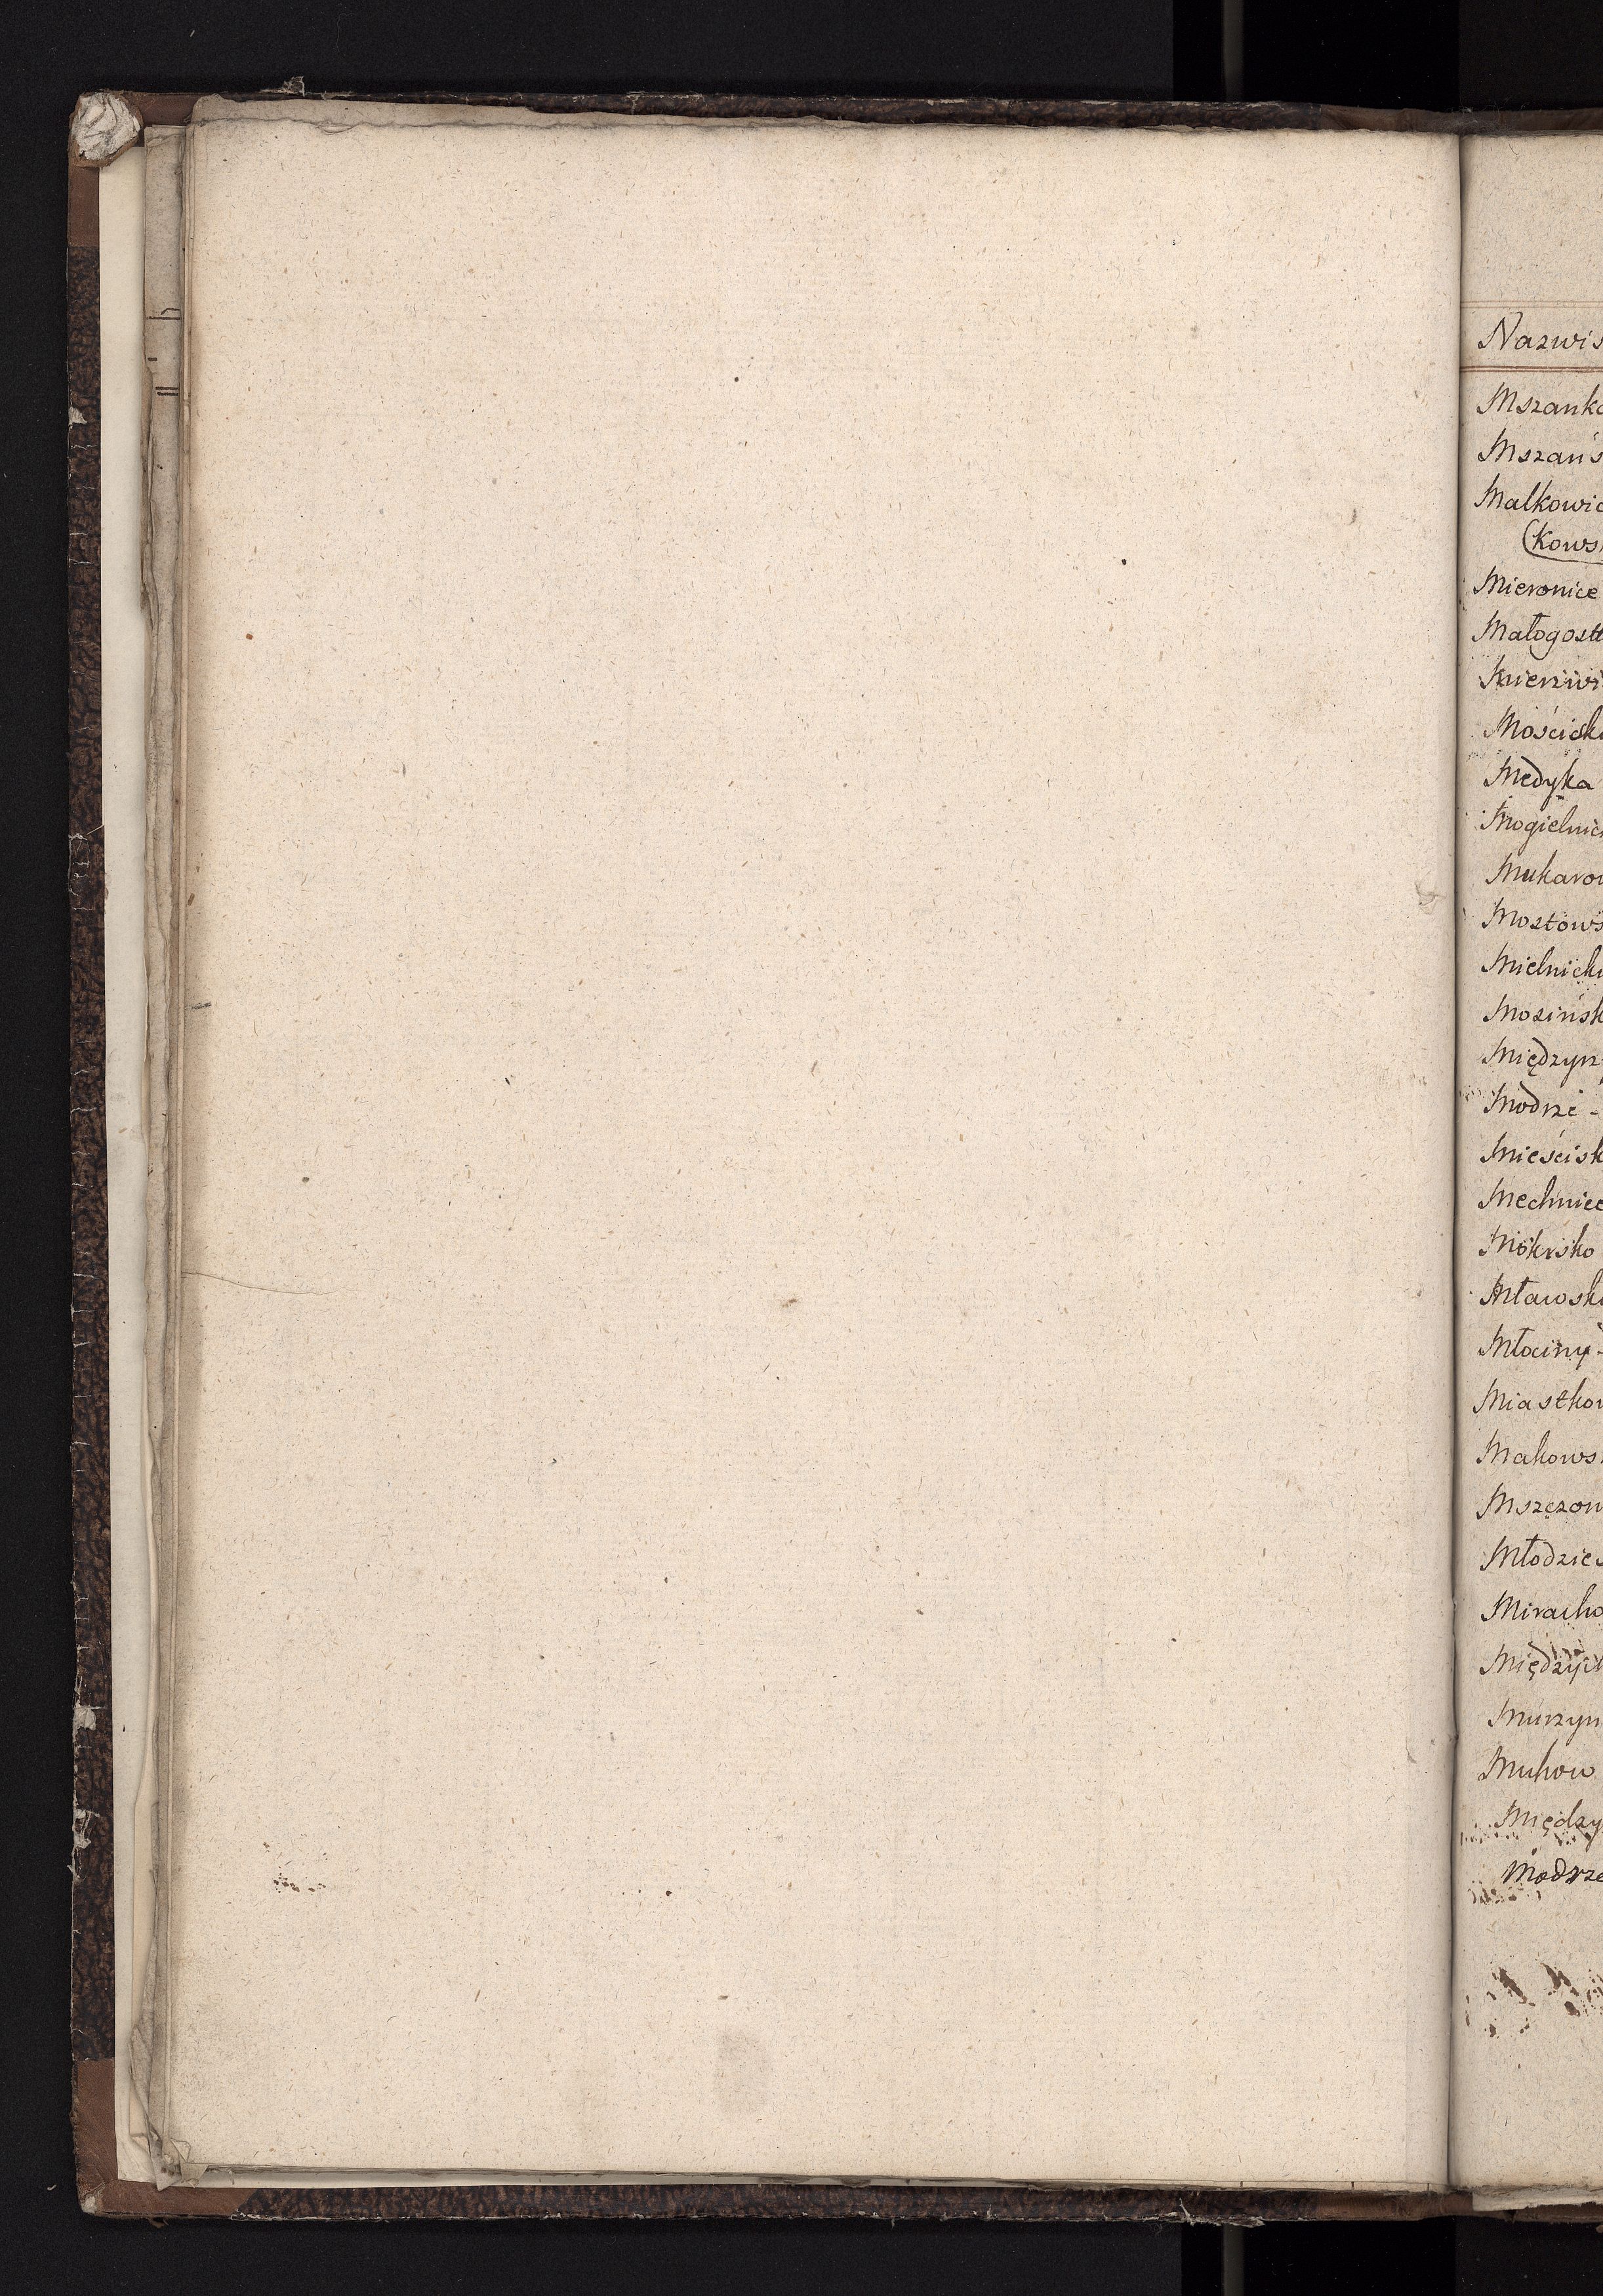 Nazwis
Mszanka
Mszańs
Malkowic
(Kows
Mieronice
Małogost
Mierzwi
Mościsk
Medyka
Mogielnic
Mukarow
Mostows
Mielnick
Mosińsk
Międzyrz
Modrze -
Mieścisk
Mechnice
Mokrsko
Mławsk
Młociny -
Miastkow
Makows
Mszczon
Młodzies
Miracho
Międzych
Murzyn
Muhow
Między
Modrze